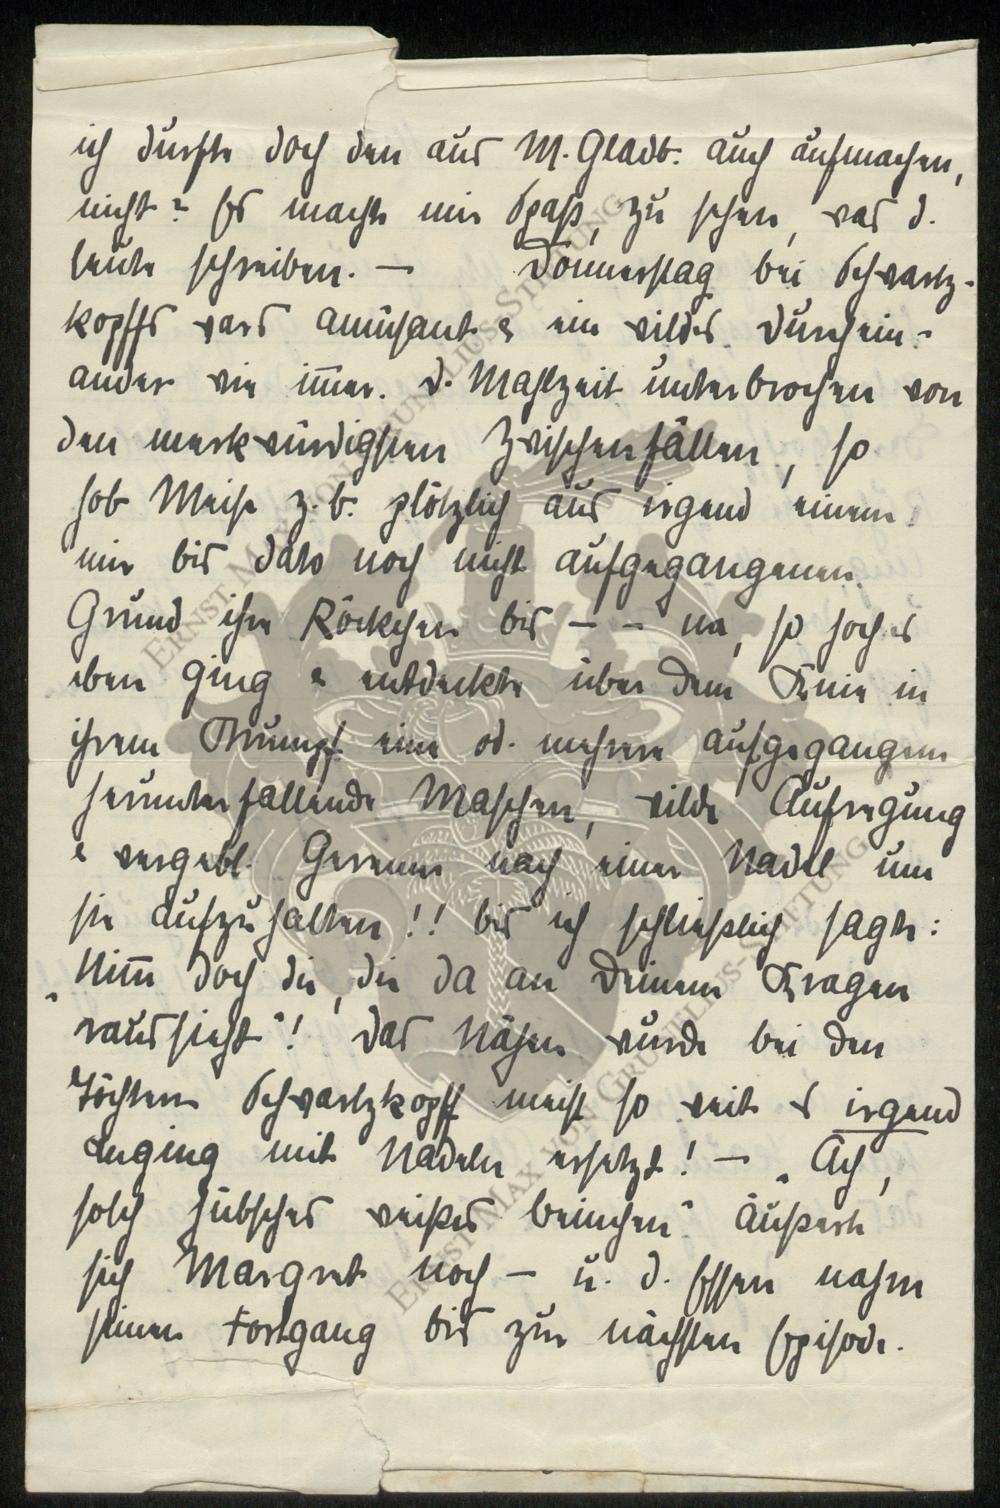 ich durfte doch den aus M. Gladb. auch aufmachen,
nicht? Es macht mir Spaß, zu sehen, was d.
Leute schreiben. — Donnerstag bei Schwartz-
kopffs wars amüsant & ein wildes Durchein-
ander wie im̅er. D. Mahlzeit unterbrochen von
den merkwürdigsten Zwischenfällen, so
hob Meise z. b. plötzlich aus irgend einem
mir bis dato noch nicht aufgegangenen
Grund ihr Röckchen bis — – na, so hoch es
eben ging & entdeckte über dem Knie in
ihrem Strumpf eine od. mehrere aufgegangene
herunterfallende Maschen, wilde Aufregung
& vergebl. Gerenne nach einer Nadel um
sie aufzuhalten!! bis ich schließlich sagte:
„Nim̅ doch die, die da an Deinem Kragen
raussieht"! Das Nähen wurde bei den
Töchtern Schwartzkopff meist so weit es irgend
anging mit Nadeln ersetzt! — „Ach,
solch hübsches weißes Beinchen" äußerte
sich Margret noch — u. d. Essen nahm
seinen Fortgang bis zur nächsten Episode.
ERNST MAX VON GRUNELIUS-STIFTUNG
ERNST MAX VON GRUNELIUS-STIFTUNG